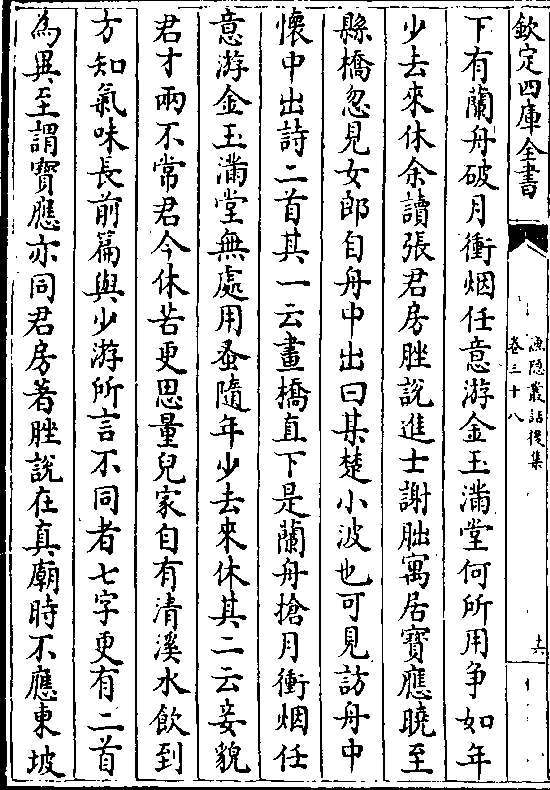 欽定四庫全書
漁隱叢話後集
卷三十八
六
下有蘭舟破月衝烟任意游金玉滿堂何所用争如年
少去來休余讀張君房脞說進士謝朏寓居寶應曉至
縣橋忽見女郎自舟中出曰某楚小波也可見訪舟中
懷中出詩二首其一云畫橋直下是蘭舟搶月衝烟任
意游金玉滿堂無處用蚤隨年少去來休其二云妾貌
君才兩不常君今休苦更思量兒家自有清溪水飲到
方知氣味長前篇與少游所言不同者七字更有二首
為異至謂寶應亦同君房著脞說在真廟時不應東坡